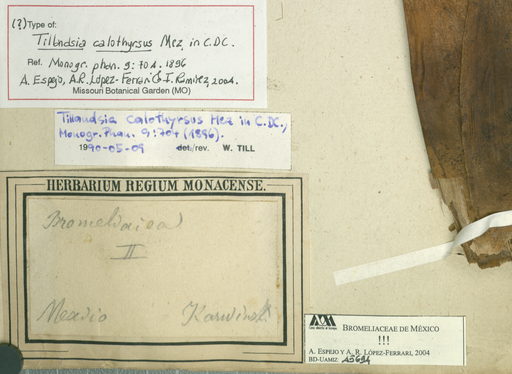 (?) Type of:
Tillandsia calothyrsus Mez in C.DC.
Ref. Monogr. phan. 9: 704. 1896
A. Espejo, A.R. López-Ferrari & I. Ramírez, 2004.
Missouri Botanical Garden (MO)
Tillandsia calothyrsus Mez in C.DC.,
Monogr. Phan. 9:704 (1896).
1990-05-09 det./rev. W. TILL
HERBARIUM REGIUM MONACENSE.
Bromeliacea
II
Mexico Karwinski
BROMELIACEAE DE MÉXICO
!!!
A. ESPEJO Y A. R. LÓPEZ-FERRARI, 2004
BD-UAMIZ